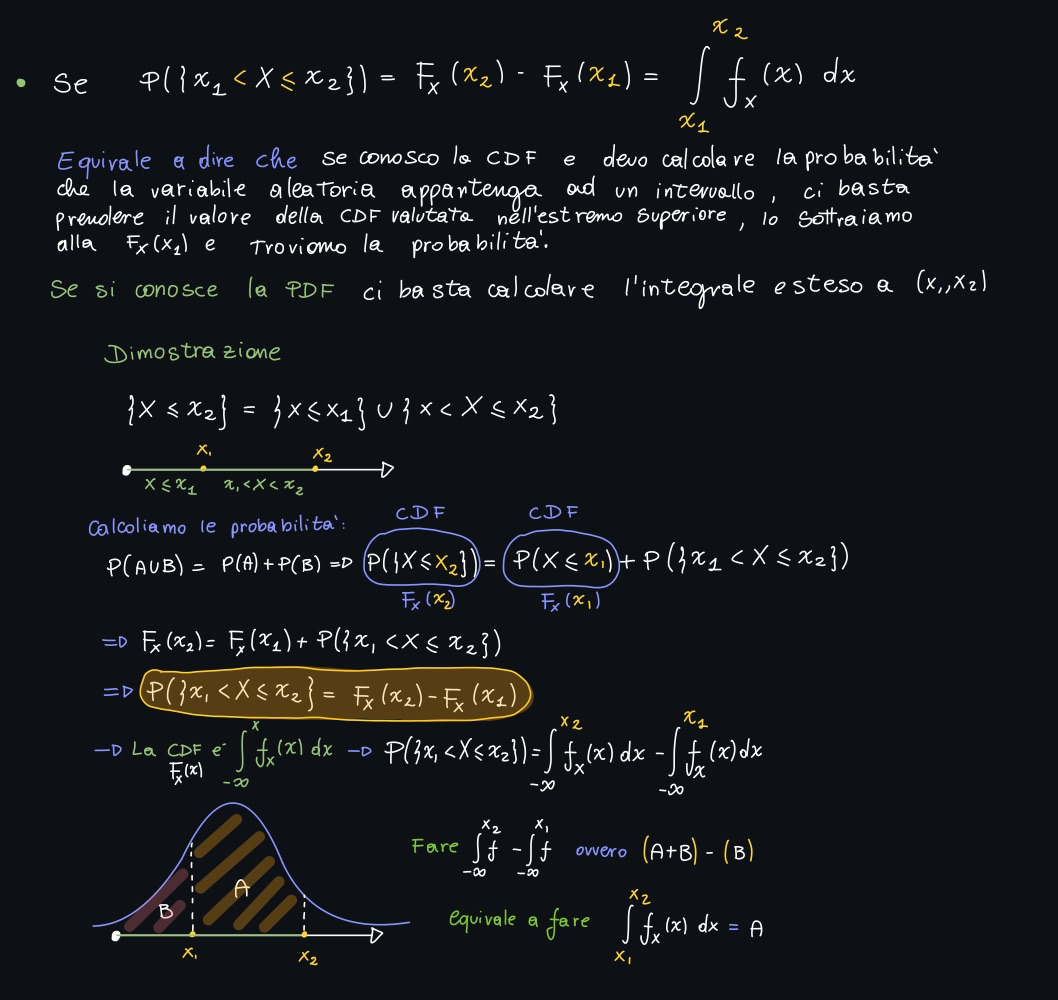 • Se P({x₁ < X ⩽ x₂}) = Fₓ(x₂) - Fₓ(x₁) = ∫_{x₁}^{x₂} fₓ(x) dx
Equivale a dire che se conosco la CDF e devo calcolare la probabilita'
che la variabile aleatoria appartenga ad un intervallo, ci basta
prendere il valore della CDF valutata nell'estremo superiore, lo sottraiamo
alla Fₓ(x₁) e troviamo la probabilita'.
Se si conosce la PDF ci basta calcolare l'integrale esteso a (x₁,x₂)
Dimostrazione
{X ⩽ x₂} = {x ⩽ x₁} ∪ {x < X ⩽ x₂}
x₁ x₂
X ⩽ x₁ x₁ < X < x₂
CDF CDF
Calcoliamo le probabilita':
P(A∪B) = P(A)+P(B) => P({X ⩽ x₂}) = P(X ⩽ x₁) + P({x₁ < X ⩽ x₂})
Fₓ(x₂) Fₓ(x₁)
=> Fₓ(x₂) = Fₓ(x₁) + P({x₁ < X ⩽ x₂})
=> P({x₁ < X ⩽ x₂} = Fₓ(x₂) - Fₓ(x₁)
-> La CDF e' ∫_{-∞}^{x} fₓ(x) dx -> P({x₁ < X ⩽ x₂}) = ∫_{-∞}^{x₂} fₓ(x) dx - ∫_{-∞}^{x₁} fₓ(x) dx
Fₓ(x)
Fare ∫_{-∞}^{x₂} f - ∫_{-∞}^{x₁} f ovvero (A+B) - (B)
A
B
equivale a fare ∫_{x₁}^{x₂} fₓ(x) dx = A
x₁ x₂